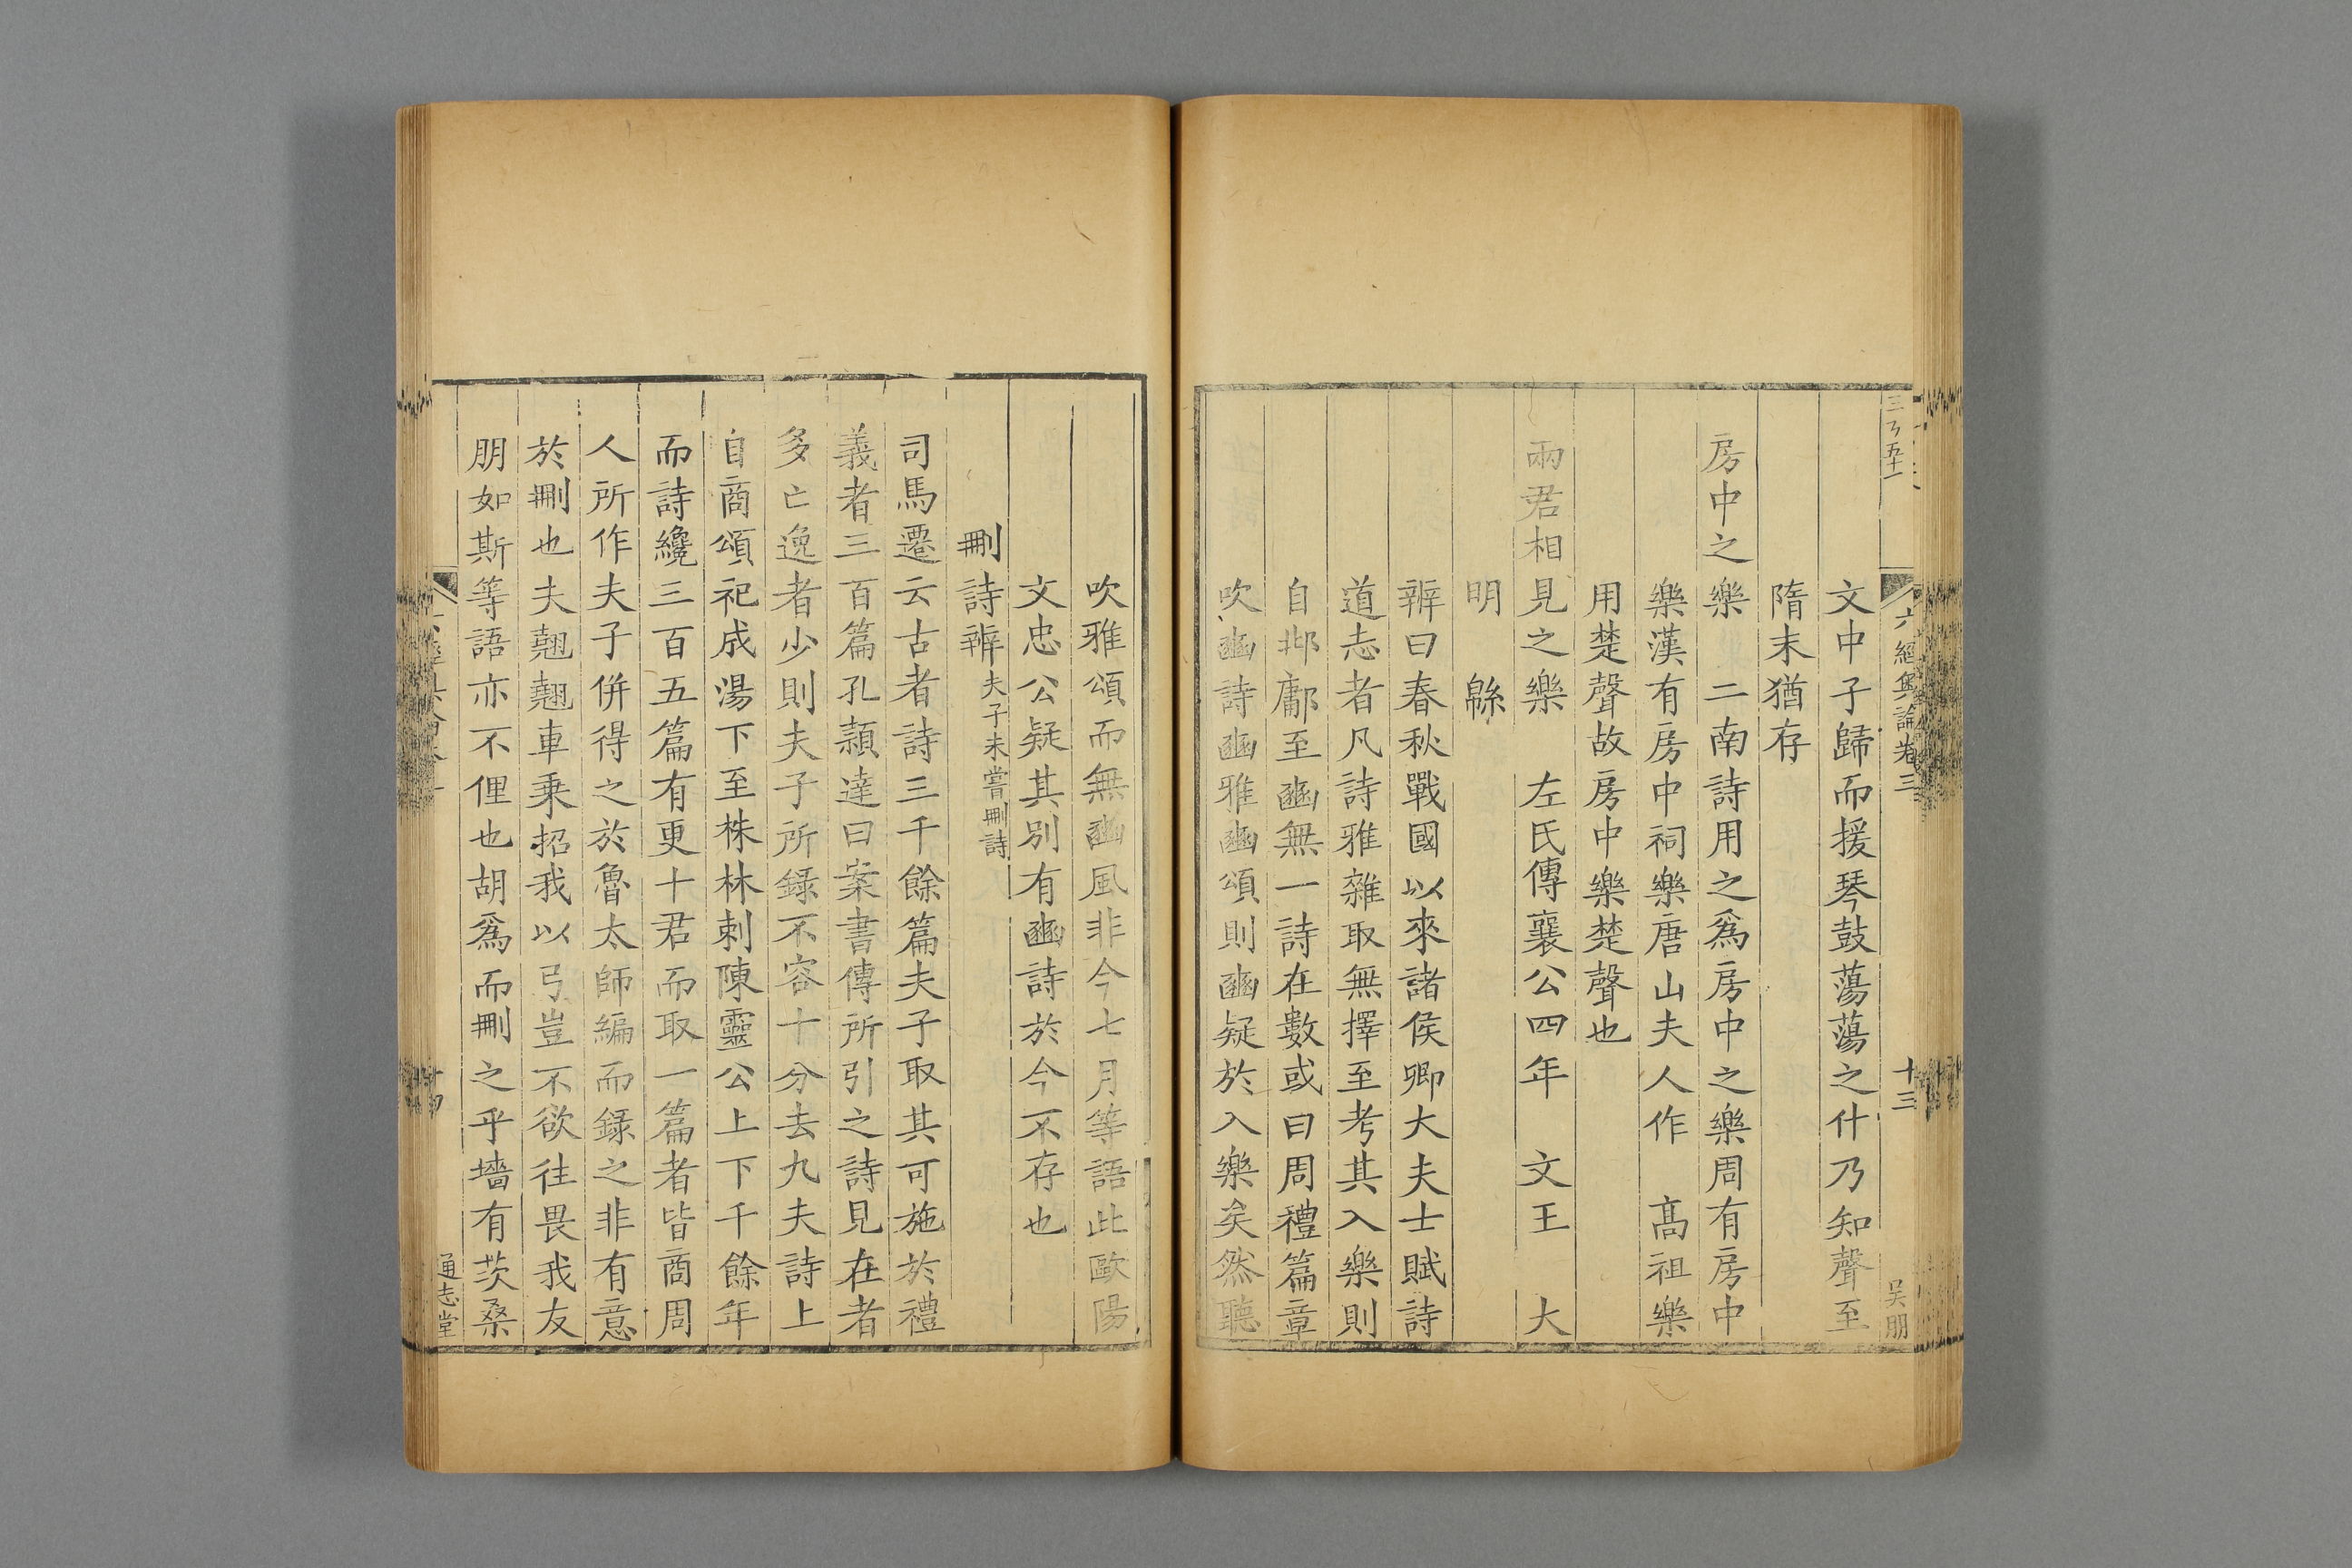 六經奧論卷三
十三
吴朋
文中子歸而援琴鼓蕩蕩之什乃知聲至
隋末猶存
房中之樂 二南詩用之爲房中之樂周有房中
樂漢有房中祠樂唐山夫人作 高祖樂
用楚聲故房中樂楚聲也
兩君相見之樂 左氏傳襄公四年 文王 大
明 緜
辨曰春秋戰國以來諸侯卿大夫士賦詩
道志者凡詩雅雜取無擇至考其入樂則
自邶鄘至豳無一詩在數或曰周禮篇章
吹豳詩豳雅豳頌則豳疑於入樂矣然聽
吹雅頌而無豳風非今七月等語此歐陽
文忠公疑其別有豳詩於今不存也
刪詩辨夫子未嘗刪詩
司馬遷云古者詩三千餘篇夫子取其可施於禮
義者三百篇孔頴達曰案書傳所引之詩見在者
多亡逸者少則夫子所録不容十分去九夫詩上
自商頌祀成湯下至株林刺陳靈公上下千餘年
而詩纔三百五篇有更十君而取一篇者皆商周
人所作夫子併得之於魯太師編而録之非有意
於刪也夫翹翹車乗招我以弓豈不欲往畏我友
朋如斯等語亦不俚也胡爲而刪之乎墻有茨桑
通志堂